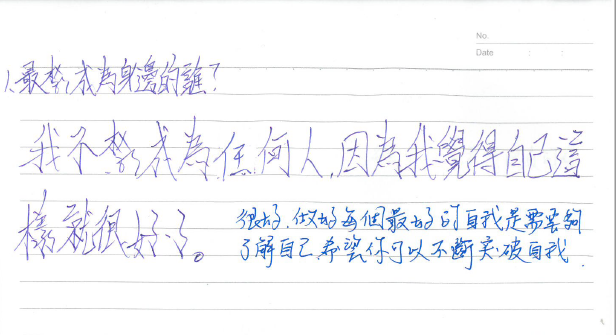 No.
Date : :
1、最想成為身邊的誰？
我不想成為任何人，因為我覺得自己這
樣就很好了。
很好，做好每個最好的自我是需要夠
了解自己，希望你可以不斷突破自我